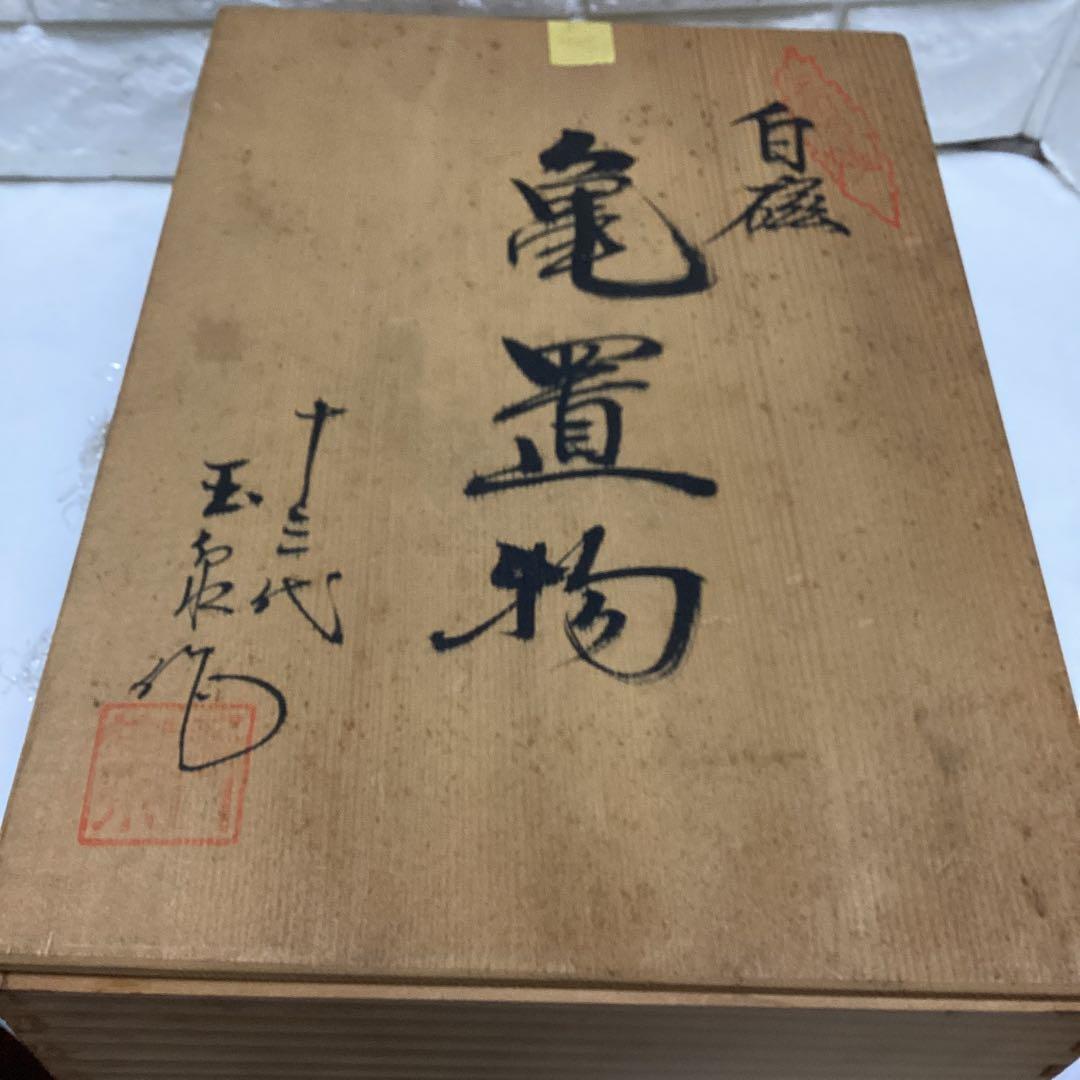 白磁
亀置物
十三代
玉泉作